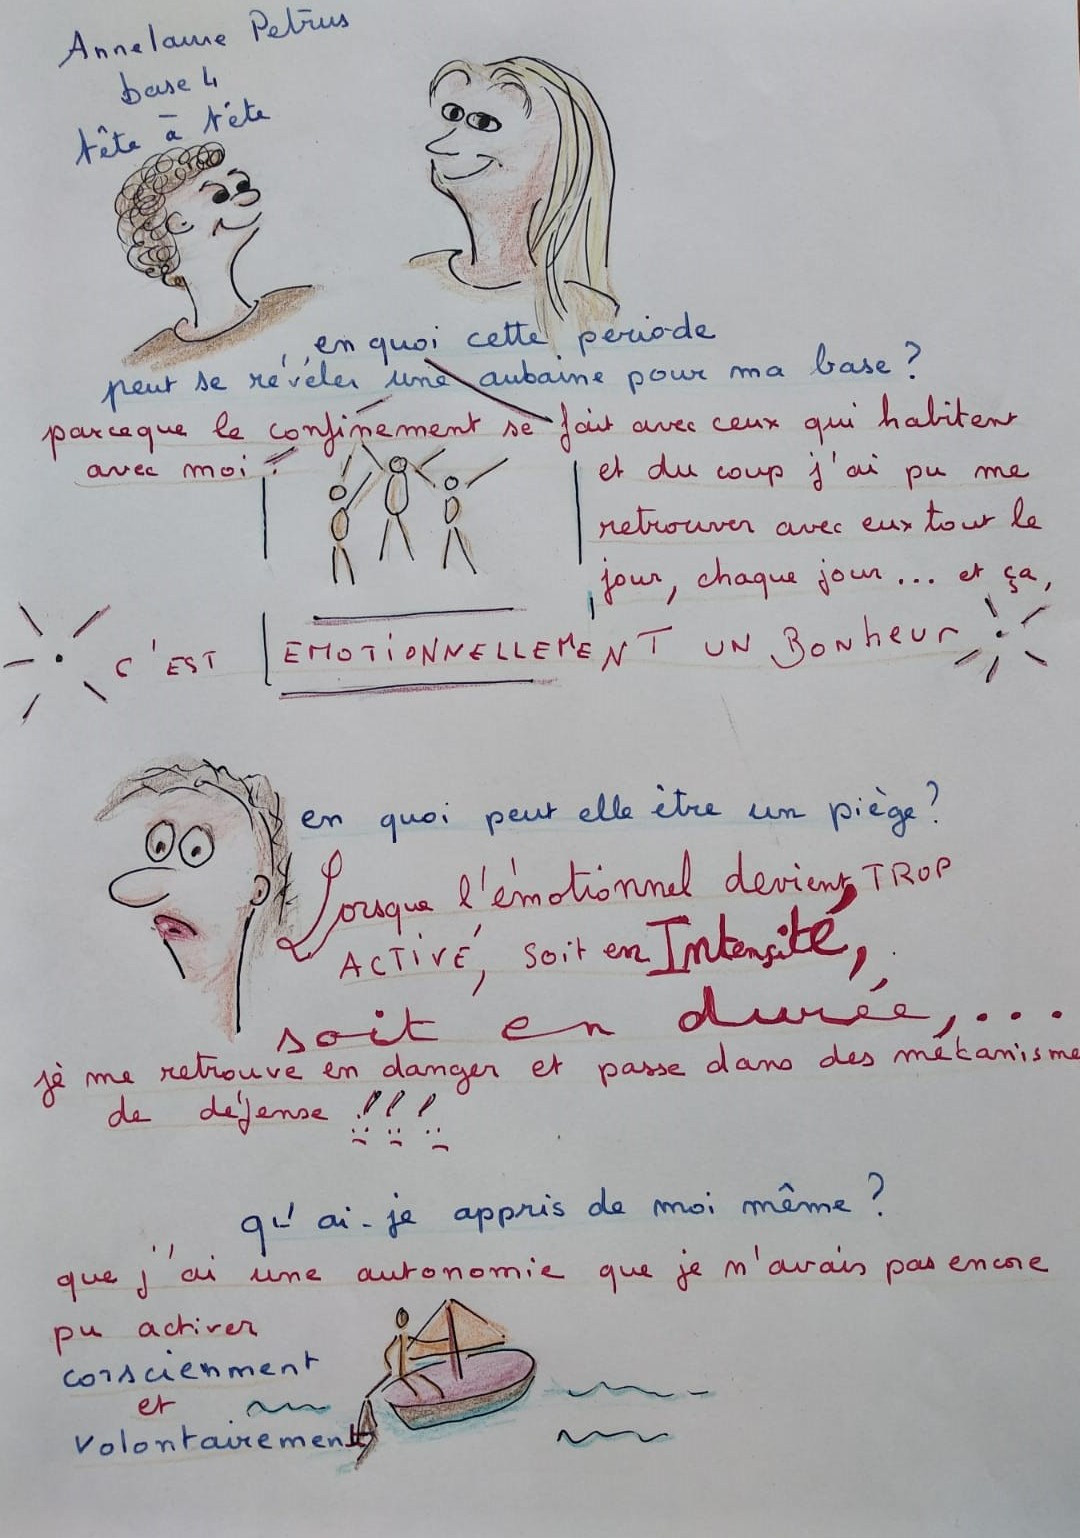 Annelaure Petrus
base 4
tête à tête
en quoi cette periode
peut se révéler une aubaine pour ma base ?
parceque le confinement se fait avec ceux qui habitent
avec moi !
et du coup j'ai pu me
retrouver avec eux tout le
jour, chaque jour... et ça,
C'EST EMOTIONNELLEMENT UN BONheur
en quoi peut elle être un piège ?
Lorsque l'émotionnel devient TROP
ACTIVÉ, soit en Intensité,
soit en durée, ...
je me retrouve en danger et passe dans des mékanisme
de défense !!!
qu'ai-je appris de moi même ?
que j'ai une autonomie que je n'avais pas encore
pu activer
consciemment
et
volontairement